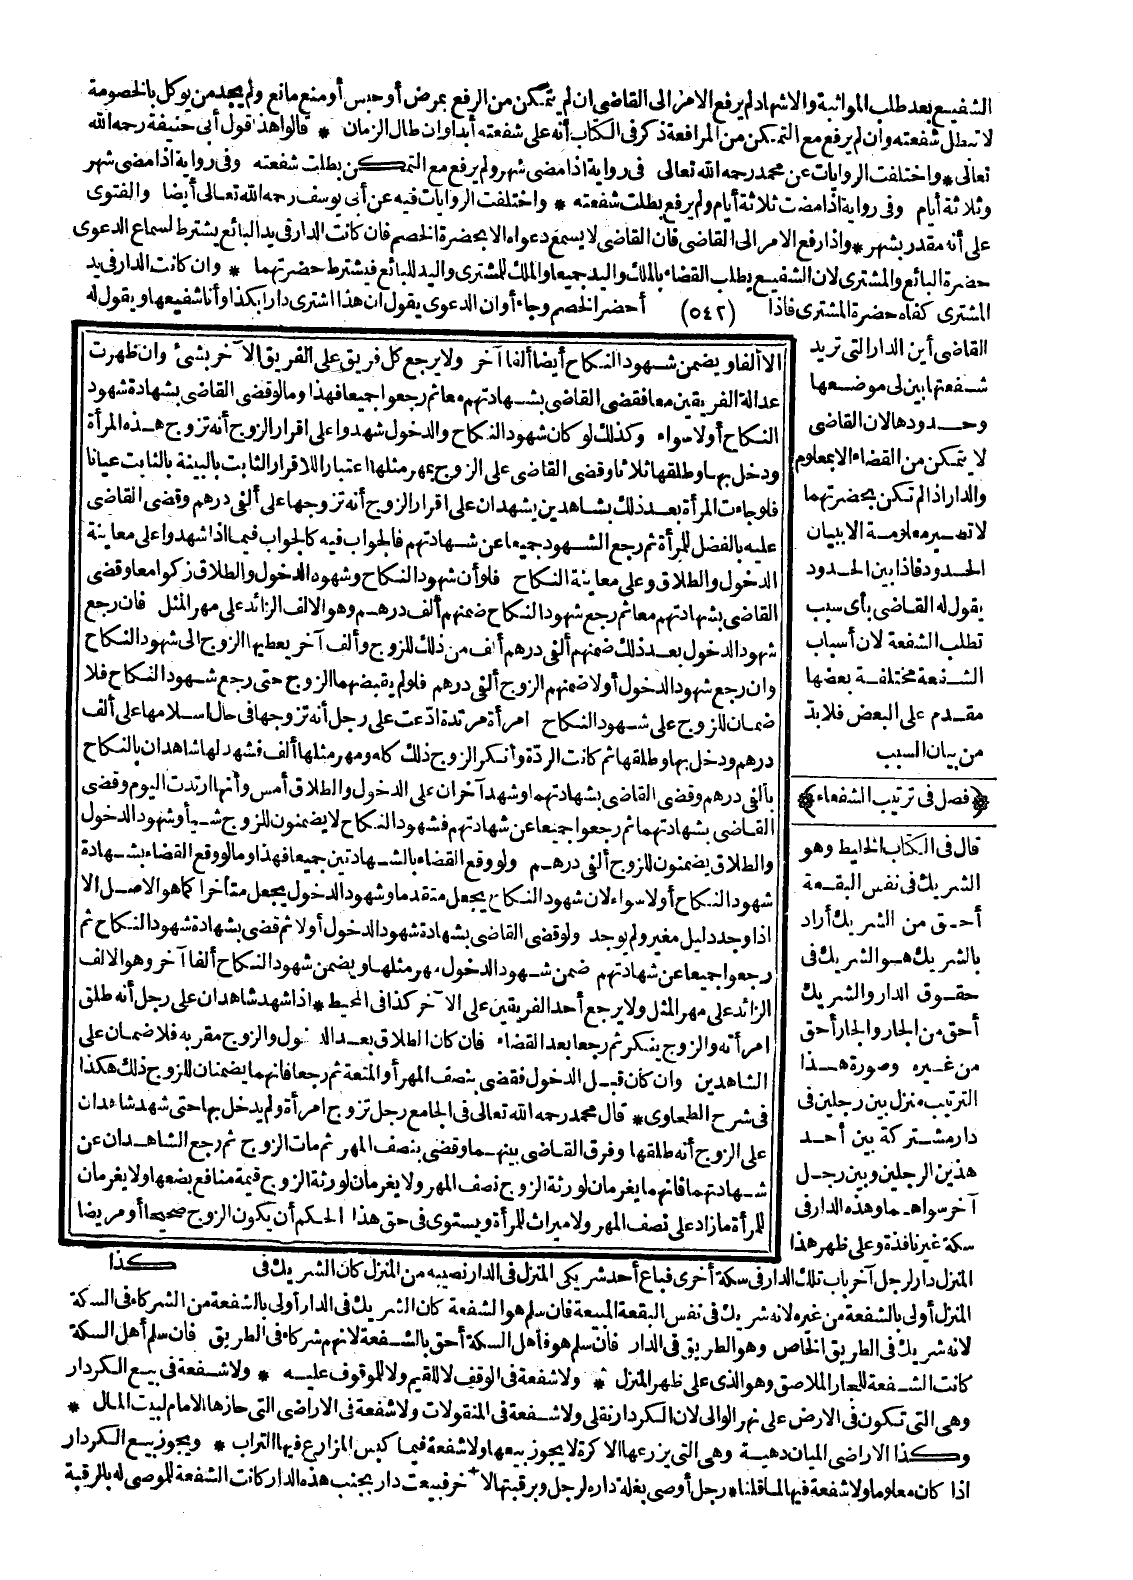 الشفيع بعد طلب المواثبة والاشهاد لم يرفع الامر الى القاضى ان لم يتمكن من الرفع بمرض أو حبس أو منع مانع ولم يجد من يوكل بالخصومة
لا تبطل شفعته وان لم يرفع مع التمكن من المرافعة ذكر فى الكتاب أنه على شفعته أبدا وان طال الزمان * قالوا هذا قول أبى حنيفة رحمه الله
تعالى * واختلفت الروايات عن محمد رحمه الله تعالى فى رواية اذا مضى شهر ولم يرفع مع التمكن بطلت شفعته وفى رواية اذا مضى شهر
وثلاثة أيام وفى رواية اذا مضت ثلاثة أيام ولم يرفع بطلت شفعته * واختلفت الروايات فيه عن أبى يوسف رحمه الله تعالى أيضا والفتوى
على أنه مقدر بشهر * واذا رفع الامر الى القاضى فان القاضى لا يسمع دعواه الا بحضرة الخصم فان كانت الدار فى يد البائع يشترط لسماع الدعوى
حضرة البائع والمشترى لان الشفيع يطلب القضاء بالملك واليد جميعا والملك للمشترى واليد للبائع فيشترط حضرتهما * وان كانت الدار فى يد
المشترى كفاه حضرة المشترى فاذا (٥٤٢) أحضر الخصم وجاء أوان الدعوى يقول ان هذا اشترى دارا بكذا وأنا شفيعها ويقول له
القاضى أين الدار التى تريد
شفعتها بين لى موضعها
وحدودها لان القاضى
لا يتمكن من القضاء الا بمعلوم
والدار اذا لم تكن بحضرتهما
لا تصير معلومة الا ببيان
الحدود فاذا بين الحدود
يقول له القاضى بأى سبب
تطلب الشفعة لان أسباب
الشفعة مختلفة بعضها
مقدم على البعض فلا بد
من بيان السبب
﴿فصل فى ترتيب الشفعاء﴾
قال فى الكتاب الخليط وهو
الشريك فى نفس البقعة
أحق من الشريك أراد
بالشريك هو الشريك فى
حقوق الدار والشريك
أحق من الجار والجار أحق
من غيره وصورة هذا
الترتيب منزل بين رجلين فى
دار مشتركة بين أحد
هذين الرجلين وبين رجل
آخر سواهما وهذه الدار فى
سكة غير نافذة وعلى ظهر هذا
الا ألفا ويضمن شهود النكاح أيضا ألفا آخر ولا يرجع كل فريق على الفريق الآخر بشئ وان ظهرت
عدالة الفريقين معا فقضى القاضى بشهادتهم معا ثم رجعوا جميعا فهذا وما لو قضى القاضى بشهادة شهود
النكاح أولا سواء وكذلك لو كان شهود النكاح والدخول شهدوا على اقرار الزوج أنه تزوج هذه المرأة
ودخل بها وطلقها ثلاثا وقضى القاضى على الزوج بمهر مثلها اعتبارا للاقرار الثابت بالبينة بالثابت عيانا
فلو جاءت المرأة بعد ذلك بشاهدين يشهدان على اقرار الزوج أنه تزوجها على ألفى درهم وقضى القاضى
عليه بالفضل للمرأة ثم رجع الشهود جميعا عن شهادتهم فالجواب فيه كالجواب فيما اذا شهدوا على معاينة
الدخول والطلاق وعلى معاينة النكاح فلو أن شهود النكاح وشهود الدخول والطلاق زكوا معا وقضى
القاضى بشهادتهم معا ثم رجع شهود النكاح ضمنهم ألف درهم وهو الالف الزائد على مهر المثل فان رجع
شهود الدخول بعد ذلك ضمنهم ألفى درهم ألف من ذلك للزوج وألف آخر يعطيها الزوج الى شهود النكاح
وان رجع شهود الدخول أولا ضمنهم الزوج ألفى درهم فلو لم يقبضهما الزوج حتى رجع شهود النكاح فلا
ضمان للزوج على شهود النكاح امرأة مرتدة ادّعت على رجل أنه تزوجها فى حال اسلامها على ألف
درهم ودخل بها وطلقها ثم كانت الردّة وأنكر الزوج ذلك كله ومهر مثلها ألف فشهد لها شاهدان بالنكاح
بألفى درهم وقضى القاضى بشهادتهما وشهد آخران على الدخول والطلاق أمس وأنها ارتدت اليوم وقضى
القاضى بشهادتهما ثم رجعوا جميعا عن شهادتهم فشهود النكاح لا يضمنون للزوج شيأ وشهود الدخول
والطلاق يضمنون للزوج ألفى درهم ولو وقع القضاء بالشهادتين جميعا فهذا وما لو وقع القضاء بشهادة
شهود النكاح أولا سواء لان شهود النكاح يجعل متقدما وشهود الدخول يجعل متأخرا كما هو الاصل الا
اذا وجد دليل مغير ولم يوجد ولو قضى القاضى بشهادة شهود الدخول أولا ثم قضى بشهادة شهود النكاح ثم
رجعوا جميعا عن شهادتهم ضمن شهود الدخول مهر مثلها ويضمن شهود النكاح ألفا آخر وهو الالف
الزائد على مهر المثل ولا يرجع أحد الفريقين على الآخر كذا فى المحيط * اذا شهد شاهدان على رجل أنه طلق
امرأته والزوج ينكر ثم رجعا بعد القضاء فان كان الطلاق بعد الدخول والزوج مقر به فلا ضمان على
الشاهدين وان كان قبل الدخول فقضى بنصف المهر أو المتعة ثم رجعا فانهما يضمنان للزوج ذلك هكذا
فى شرح الطحاوى * قال محمد رحمه الله تعالى فى الجامع رجل تزوج امرأة ولم يدخل بها حتى شهد شاهدان
على الزوج أنه طلقها وفرق القاضى بينهما وقضى بنصف المهر ثم مات الزوج ثم رجع الشاهدان عن
شهادتهما فانهما يغرمان لورثة الزوج نصف المهر ولا يغرمان لورثة الزوج قيمة منافع بضعها ولا يغرمان
للمرأة ما زاد على نصف المهر ولا ميراث للمرأة ويستوى فى حق هذا الحكم أن يكون الزوج صحيحا أو مريضا
كذا
المنزل دار لرجل آخر باب تلك الدار فى سكة أخرى فباع أحد شريكى المنزل فى الدار نصيبه من المنزل كان الشريك فى
المنزل أولى بالشفعة من غيره لانه شريك فى نفس البقعة المبيعة فان سلم هو الشفعة كان الشريك فى الدار أولى بالشفعة من الشركاء فى السكة
لانه شريك فى الطريق الخاص وهو الطريق فى الدار فان سلم هو فأهل السكة أحق بالشفعة لانهم شركاء فى الطريق فان سلم أهل السكة
كانت الشفعة للجار الملاصق وهو الذى على ظهر المنزل * ولا شفعة فى الوقف لا للقيم ولا للموقوف عليه * ولا شفعة فى بيع الكردار
وهى التى تكون فى الارض على نهر الوالى لان الكردار نقلى ولا شفعة فى المنقولات ولا شفعة فى الاراضى التى حازها الامام لبيت المال *
وكذا الاراضى الميان دهية وهى التى يزرعها الاكرة لا يجوز بيعها ولا شفعة فيما كبس المزارع فيها التراب * ويجوز بيع الكردار
اذا كان معلوما ولا شفعة فيها لما قلنا * رجل أوصى بغلة داره لرجل وبرقبتها لآخر فبيعت دار بجنب هذه الدار كانت الشفعة للموصى له بالرقبة